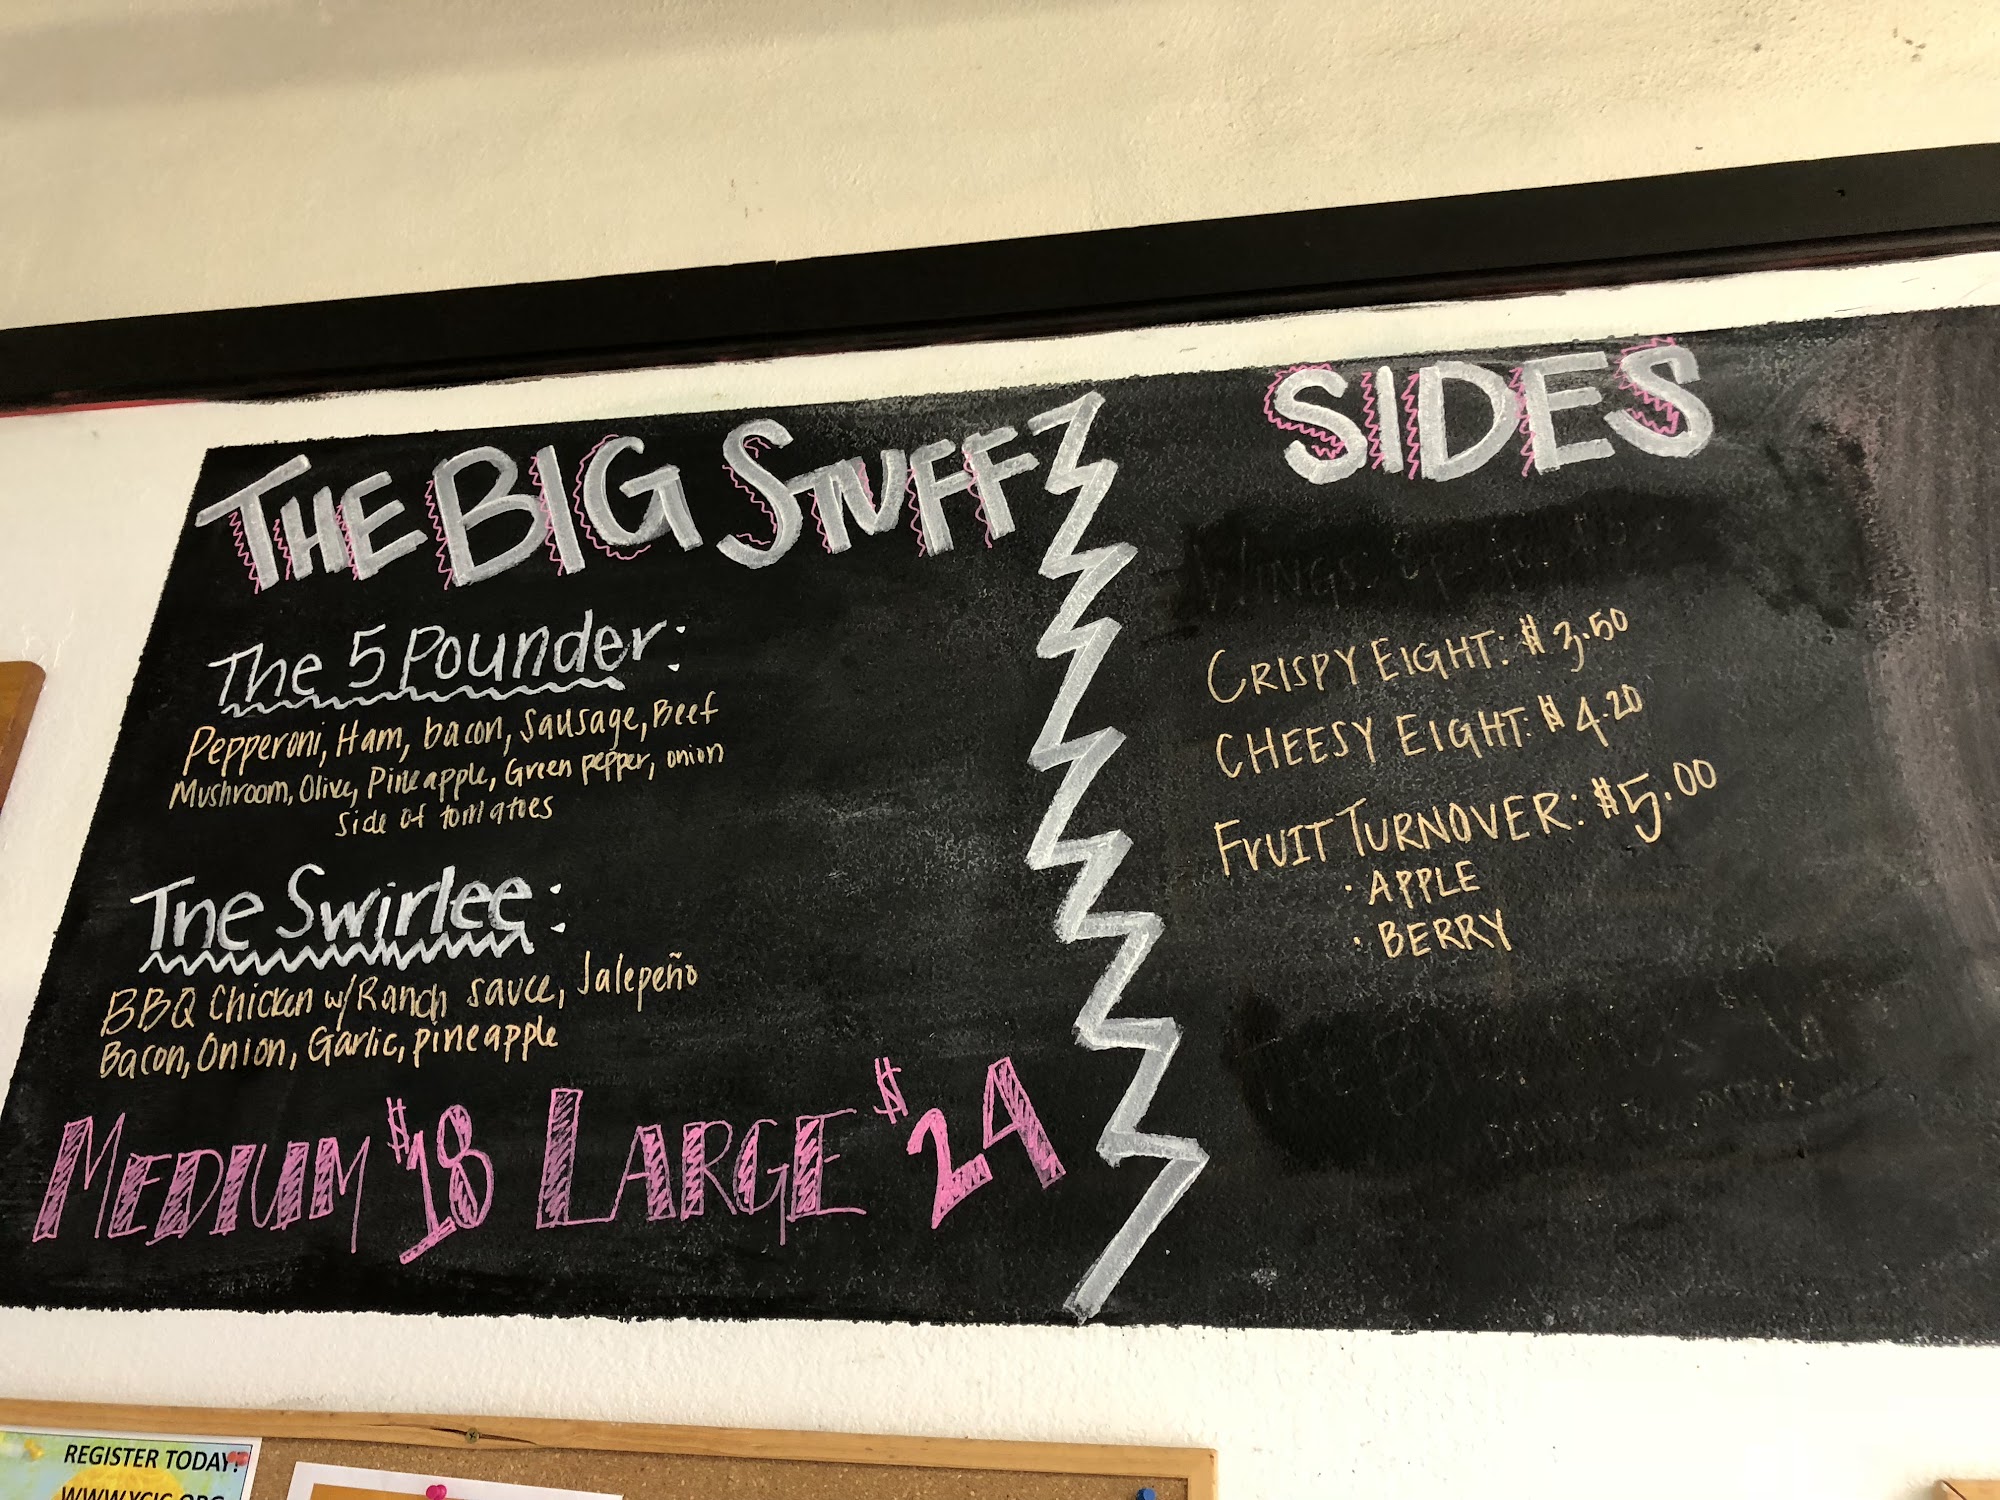 THE BIG STUFF
The 5 Pounder:
Pepperoni, Ham, bacon, Sausage, Beef
Mushroom, Olive, Pineapple, Green pepper, onion
Side of tomatoes
The Swirlee:
BBQ Chicken w/Ranch sauce, Jalepeño
Bacon, Onion, Garlic, pineapple
MEDIUM $18 LARGE $24
SIDES
WINGS:
CRISPY EIGHT: $3.50
CHEESY EIGHT: $4.20
FRUIT TURNOVER: $5.00
· APPLE
· BERRY
REGISTER TODAY!
WWW.YCIC.ORG